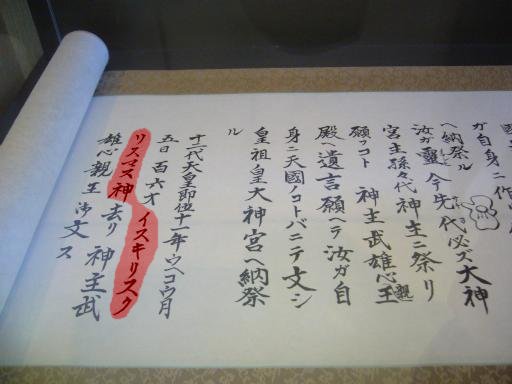 ガ自身ニ作
ヘ納祭ル
汝ガ靈
代必ズ大神
宮主孫々代神主ニ祭リ
願フコト 神主武雄心親王
殿ヘ遺言願ヘテ汝ガ自
身ニ天國ノコトバニテ文シ
皇祖皇大神宮ヘ納祭
ル
十一代天皇即位十一年ウヘコウ月
五日百六才 イスキリスク
リスマス神去リ 神主武
雄心親王御文ス